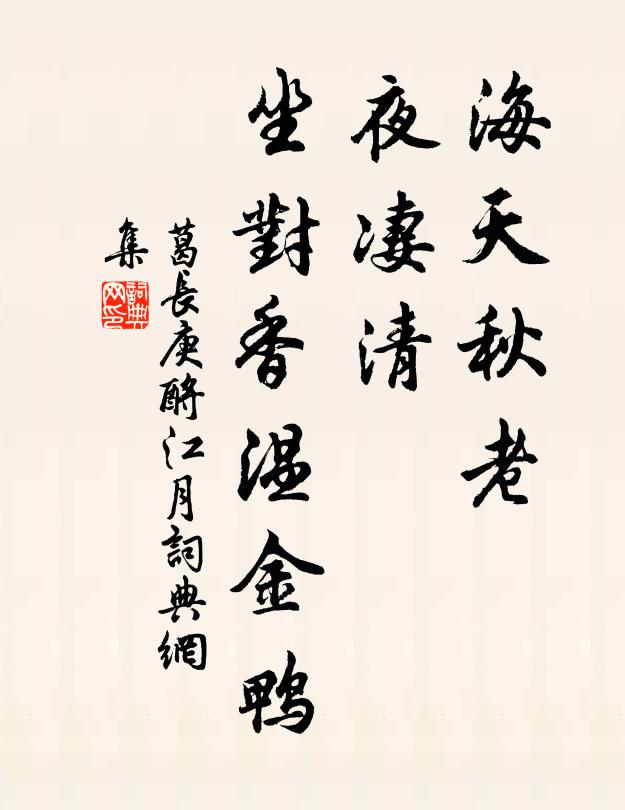 海天秋老
夜凄清
坐對香温金鴨
葛長庚酹江月詞典網
集
詞典
网印